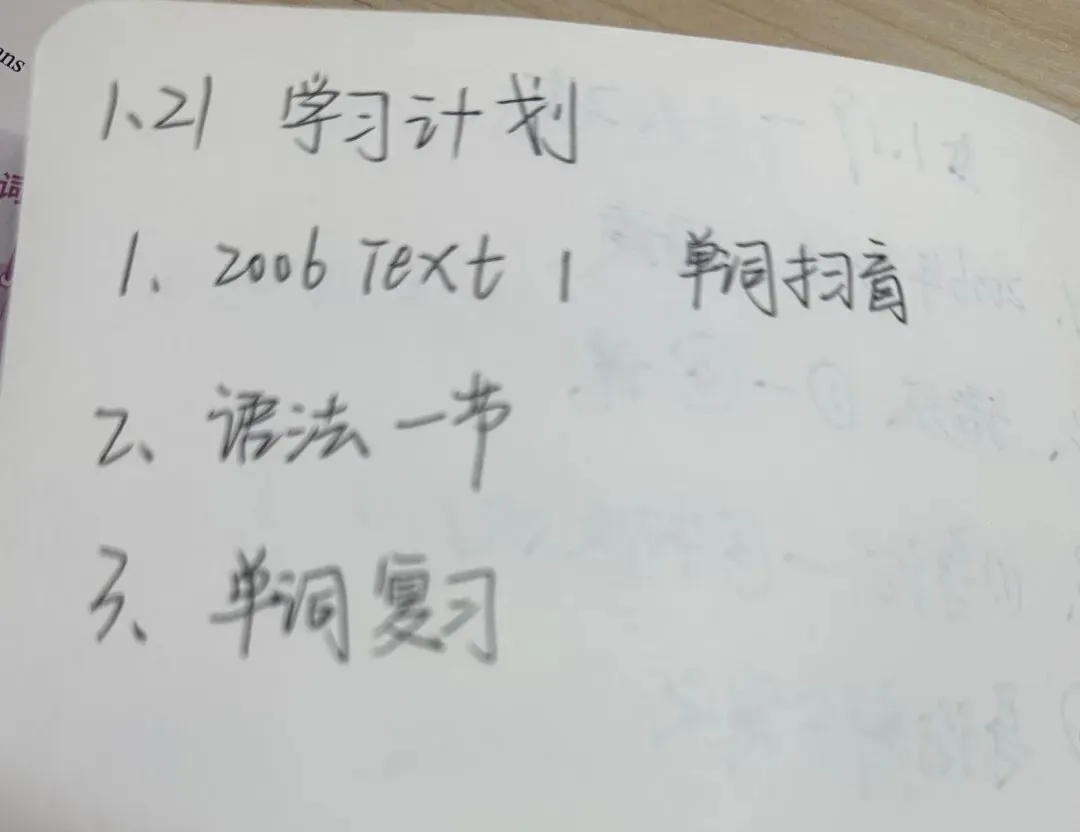 ns
词
1、21 学习计划
1、2006 Text 1 单词扫盲
2、语法一节
3、单词复习